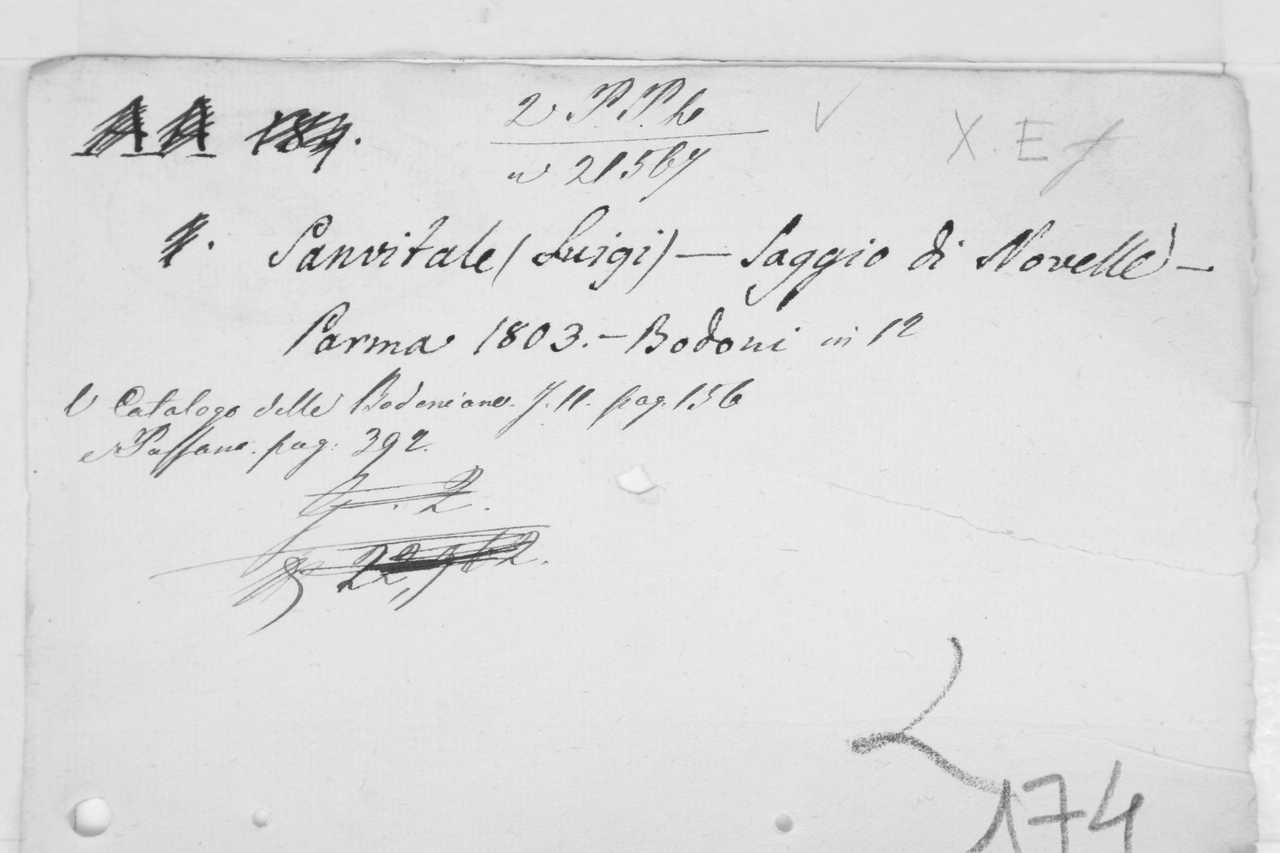 AA 184.
2 P.P. h
n 21567
X. E f
1. Sanvitale (Luigi) — Saggio di Novelle —
Parma 1803. — Bodoni in 12
V Catalogo delle Bodoniane. T. II. pag. 156
e Passano. pag: 392.
G. 2.
174